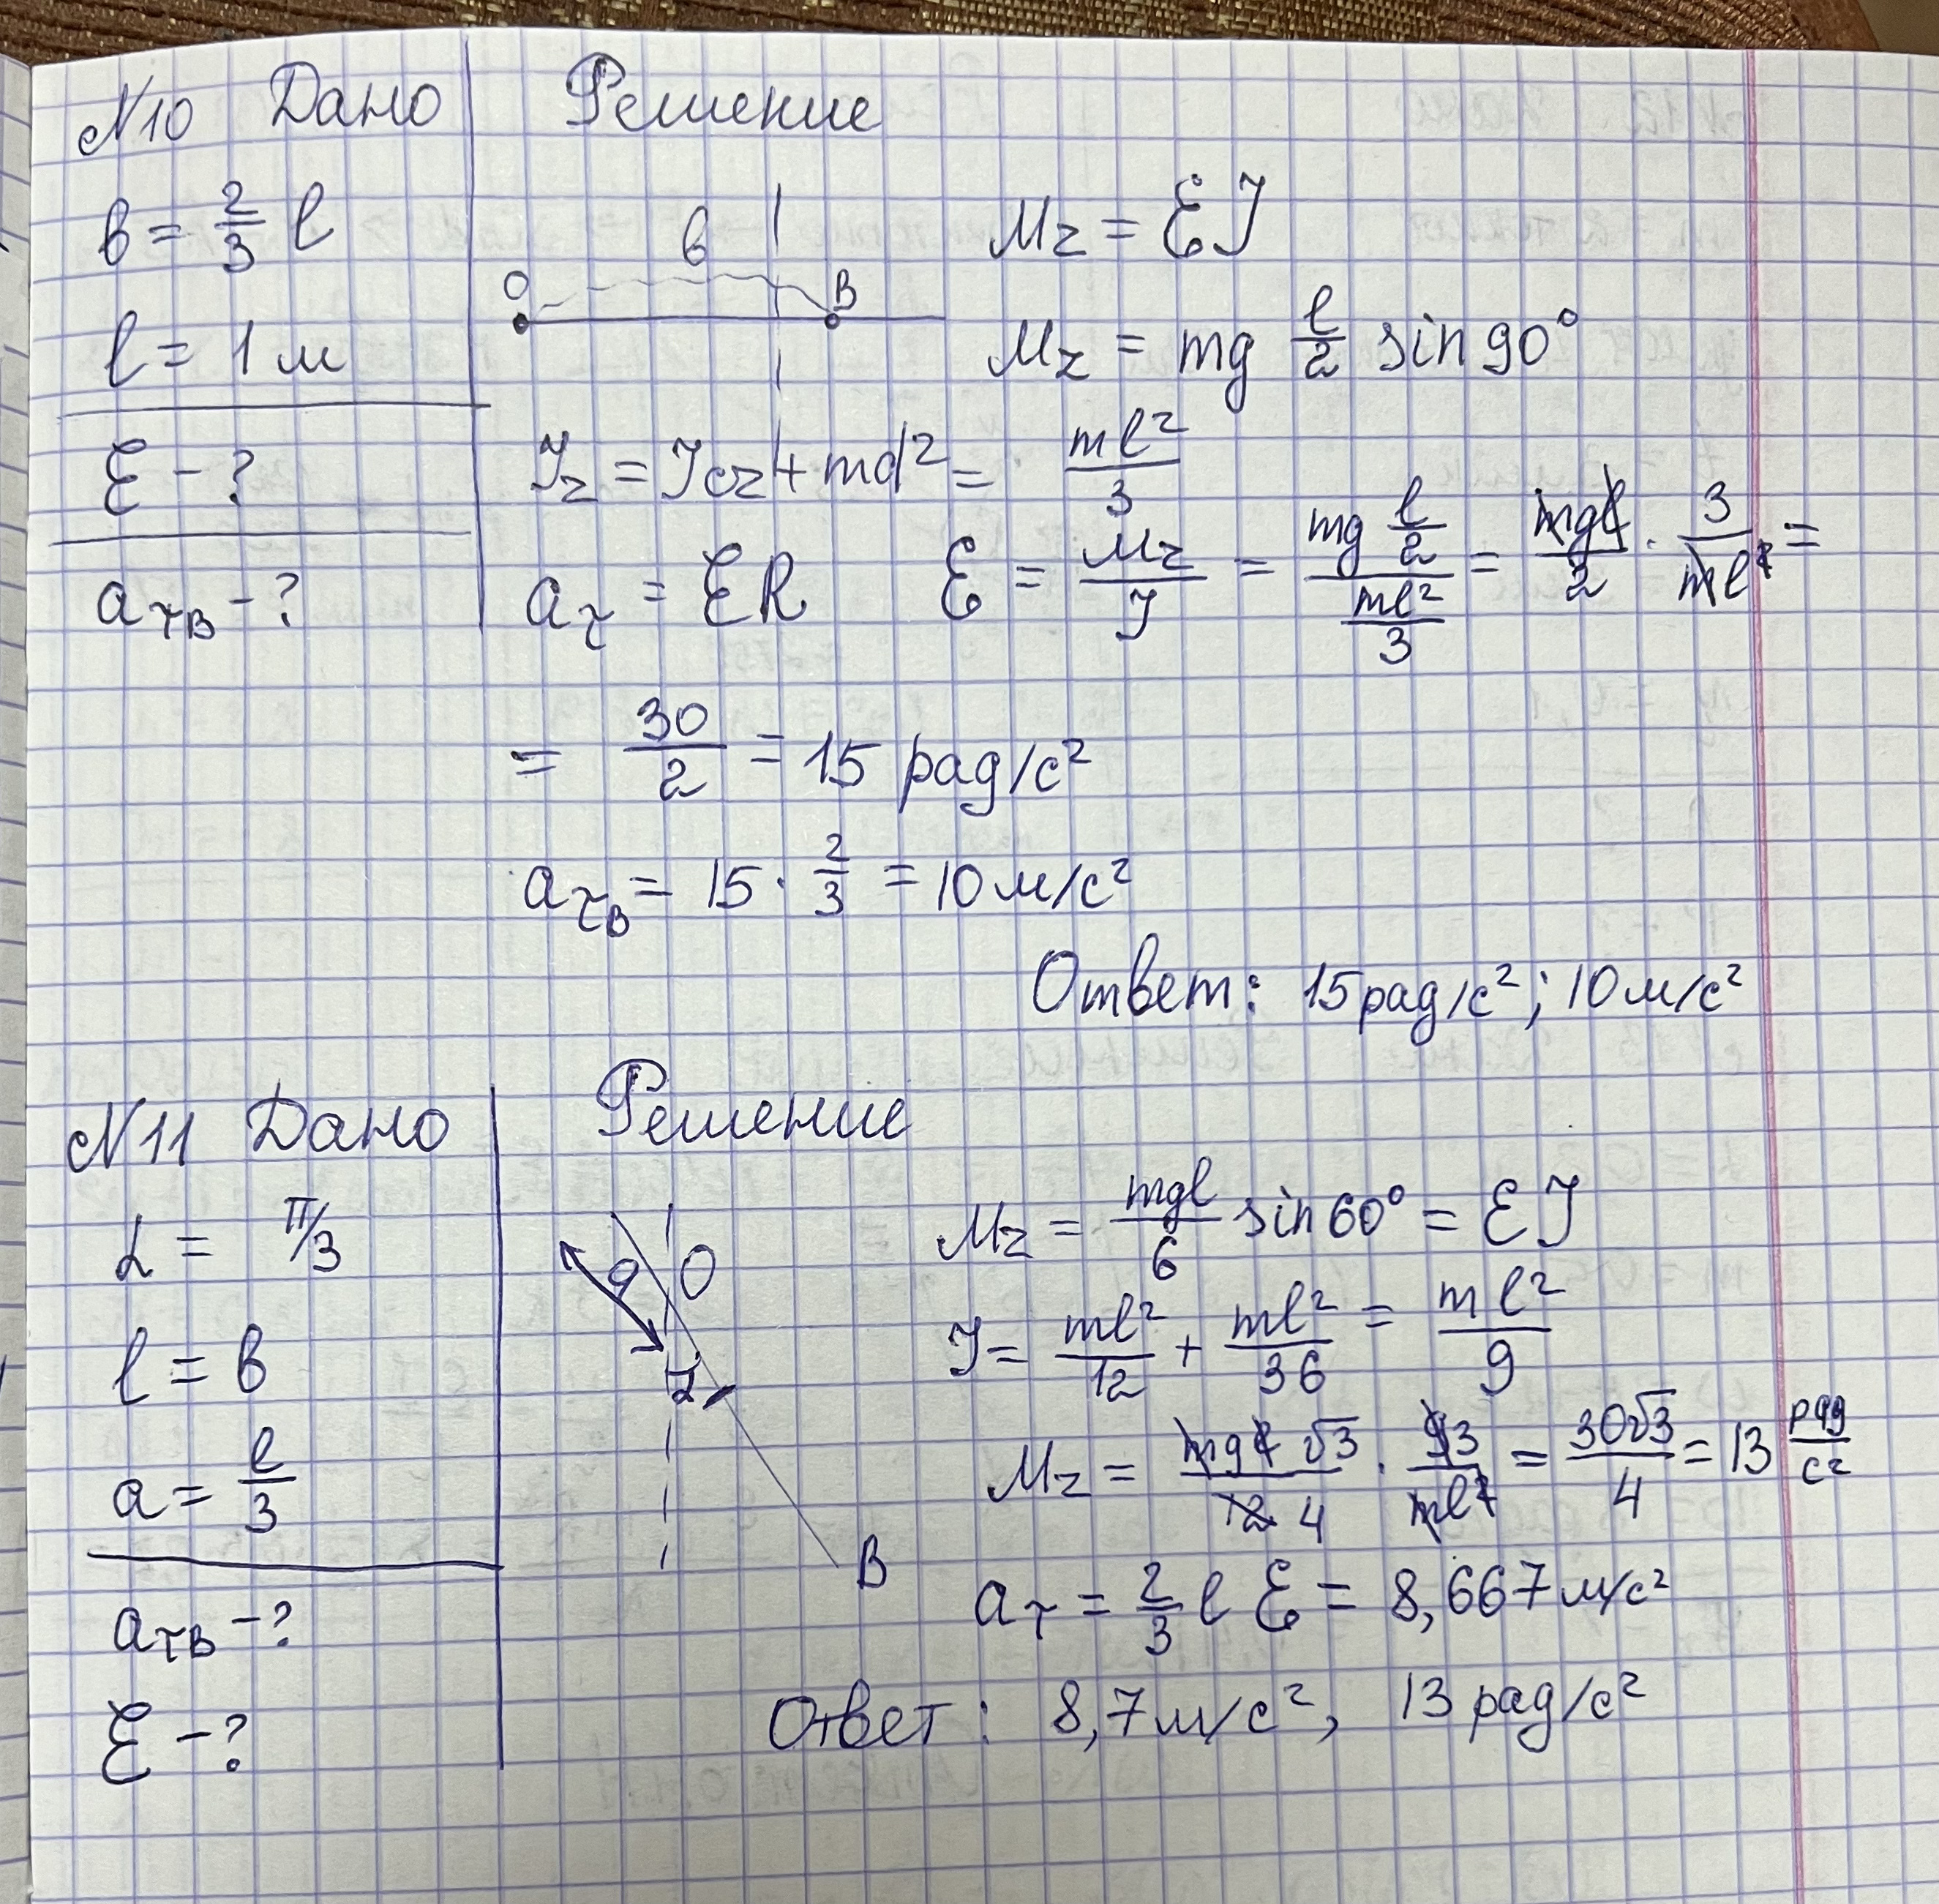 №10 Дано Решение
в = 2/3 l
l = 1 м
ℰ - ?
aτB - ?
O в B
Mz = ℰJ
Mz = mg l/2 sin 90°
Jz = Jcz + md² = ml²/3
aτ = ℰR ℰ = Mz/J = (mg l/2)/(ml²/3) = mgl/2 · 3/ml² =
= 30/2 = 15 рад/с²
aτB = 15 · 2/3 = 10 м/с²
Ответ: 15 рад/с²; 10 м/с²
№11 Дано Решение
α = π/3
l = в
a = l/3
aτB - ?
ℰ - ?
a O
α
B
Mz = mgl/6 sin 60° = ℰJ
J = ml²/12 + ml²/36 = ml²/9
Mz = mgl√3/12 4 · 93/ml² = 30√3/4 = 13 рад/с²
aτ = 2/3 l ℰ = 8,667 м/с²
Ответ: 8,7 м/с², 13 рад/с²